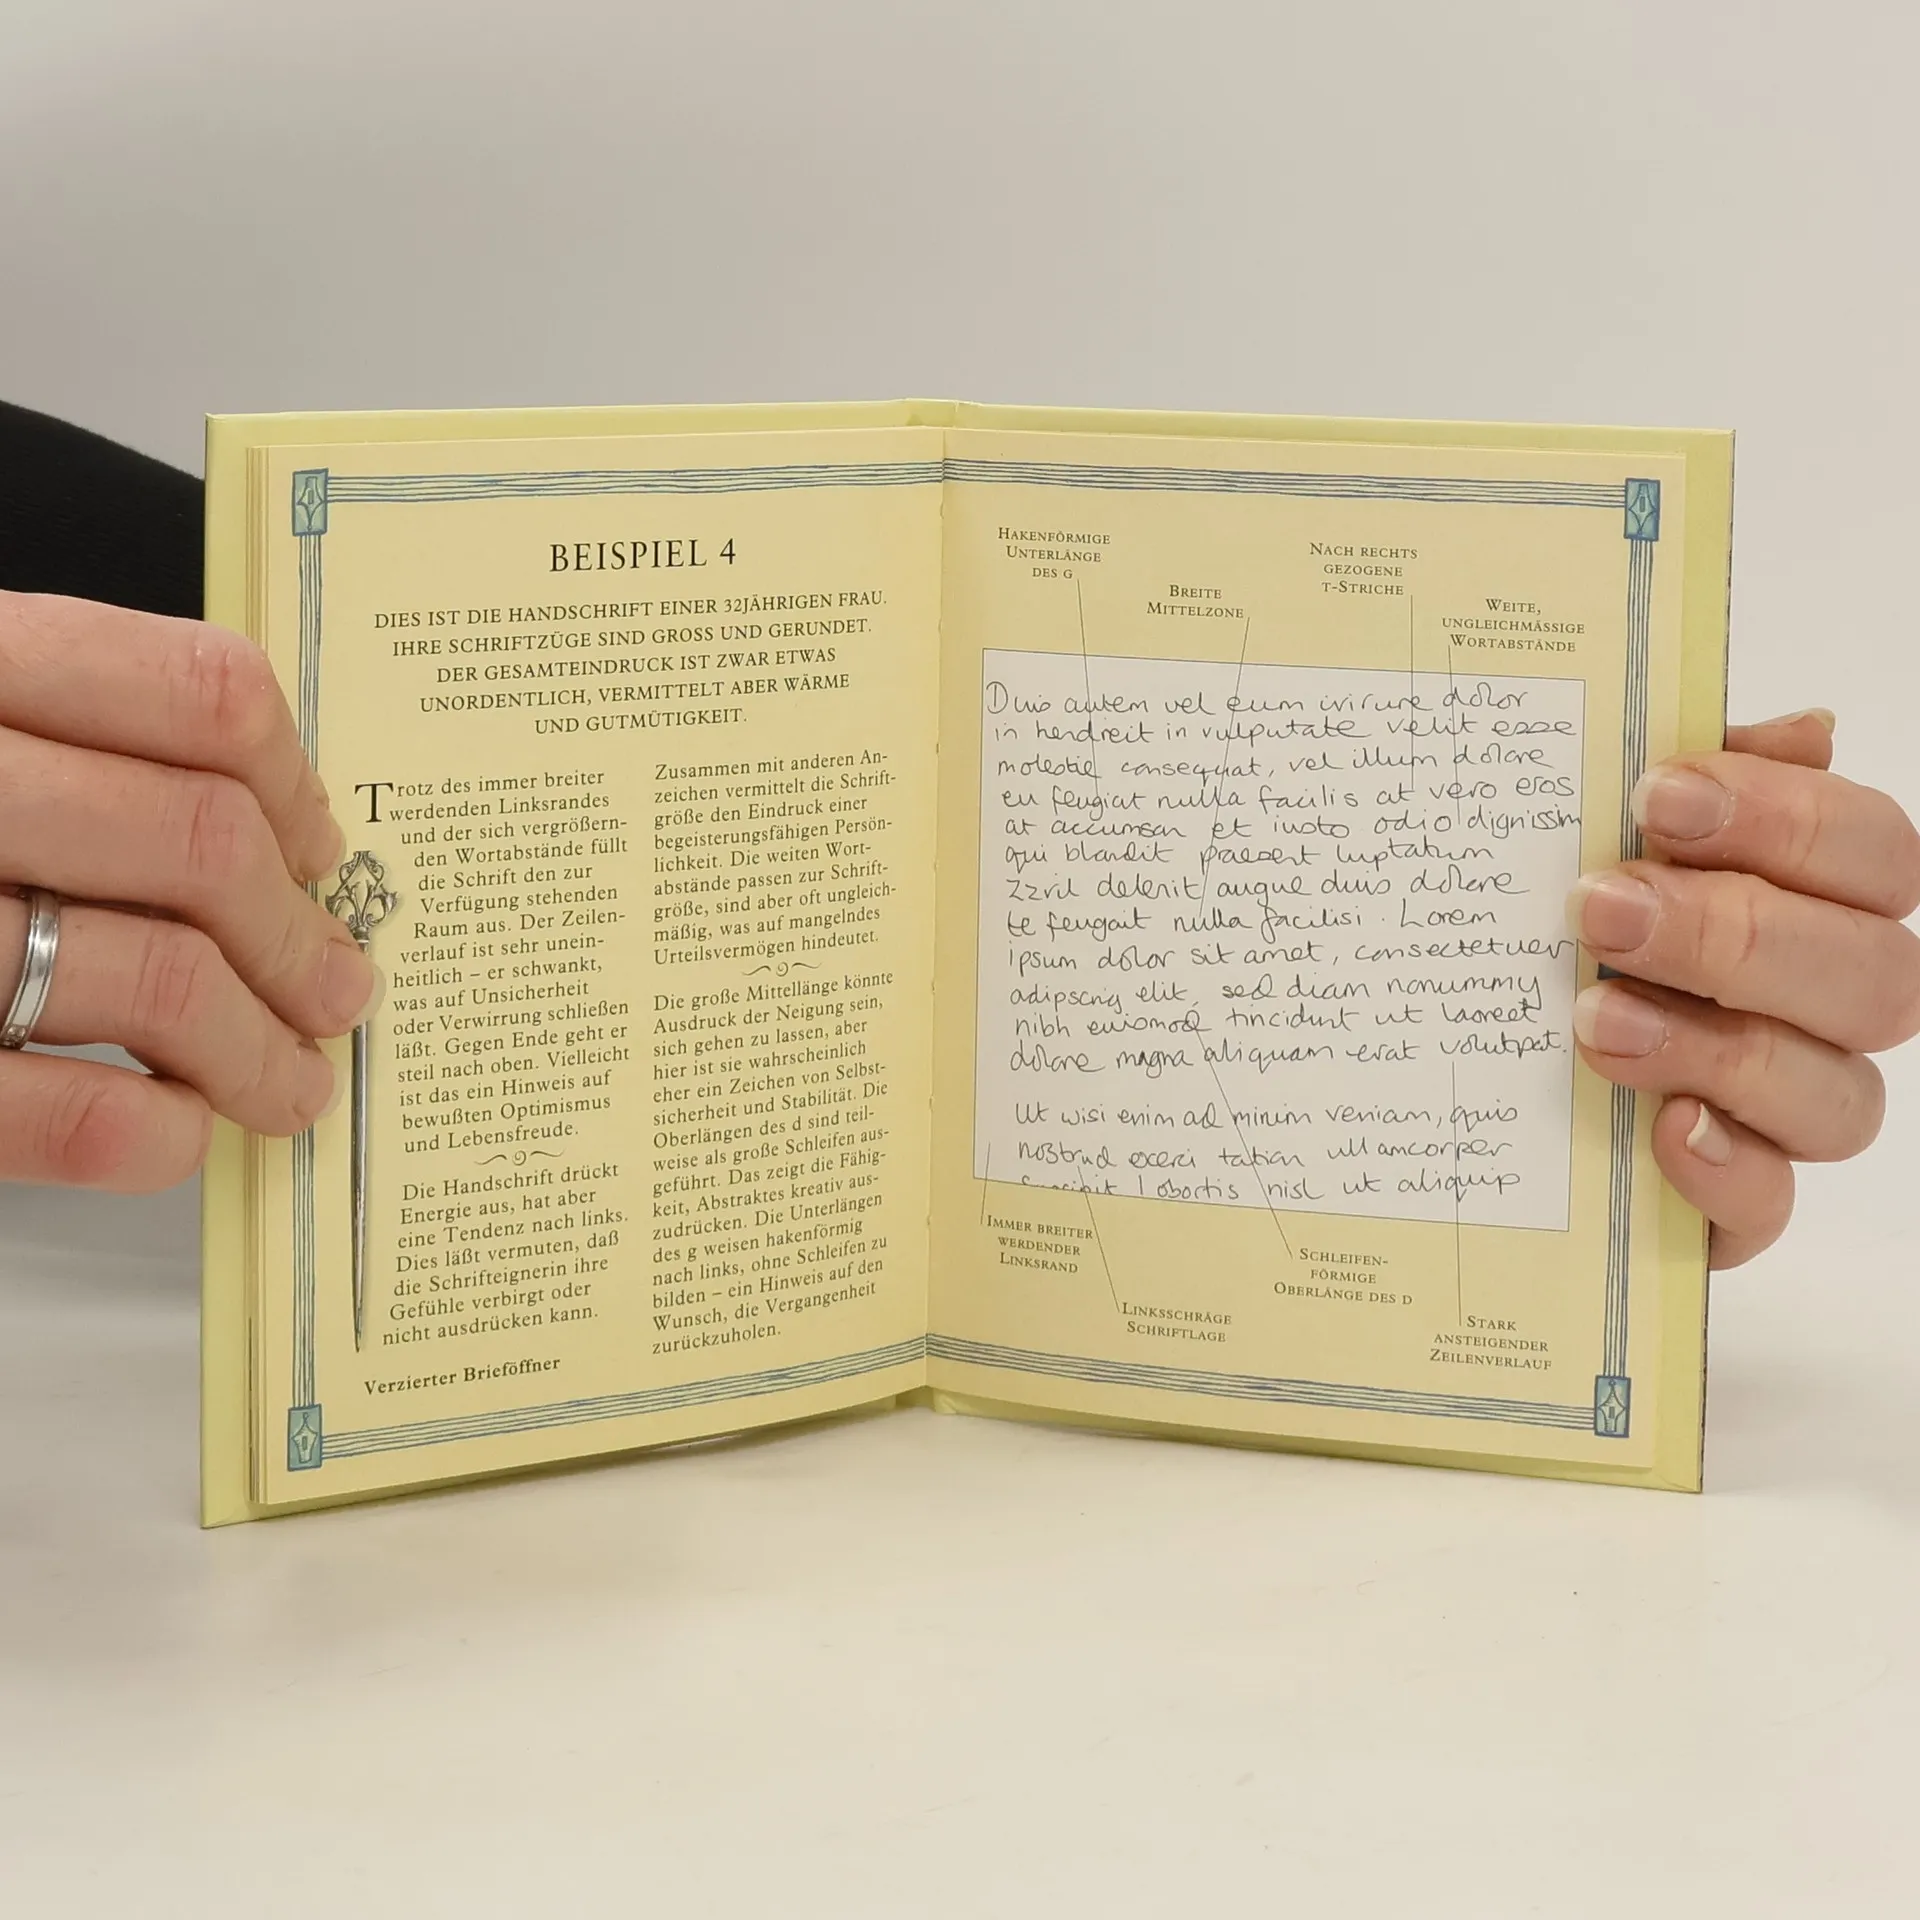 BEISPIEL 4
DIES IST DIE HANDSCHRIFT EINER 32JÄHRIGEN FRAU.
IHRE SCHRIFTZÜGE SIND GROSS UND GERUNDET.
DER GESAMTEINDRUCK IST ZWAR ETWAS
UNORDENTLICH, VERMITTELT ABER WÄRME
UND GUTMÜTIGKEIT.
Trotz des immer breiter
werdenden Linksrandes
und der sich vergrößern-
den Wortabstände füllt
die Schrift den zur
Verfügung stehenden
Raum aus. Der Zeilen-
verlauf ist sehr unein-
heitlich – er schwankt,
was auf Unsicherheit
oder Verwirrung schließen
läßt. Gegen Ende geht er
steil nach oben. Vielleicht
ist das ein Hinweis auf
bewußten Optimismus
und Lebensfreude.
Die Handschrift drückt
Energie aus, hat aber
eine Tendenz nach links.
Dies läßt vermuten, daß
die Schrifteignerin ihre
Gefühle verbirgt oder
nicht ausdrücken kann.
Verzierter Brieföffner
Zusammen mit anderen An-
zeichen vermittelt die Schrift-
größe den Eindruck einer
begeisterungsfähigen Persön-
lichkeit. Die weiten Wort-
abstände passen zur Schrift-
größe, sind aber oft ungleich-
mäßig, was auf mangelndes
Urteilsvermögen hindeutet.
Die große Mittellänge könnte
Ausdruck der Neigung sein,
sich gehen zu lassen, aber
hier ist sie wahrscheinlich
eher ein Zeichen von Selbst-
sicherheit und Stabilität. Die
Oberlängen des d sind teil-
weise als große Schleifen aus-
geführt. Das zeigt die Fähig-
keit, Abstraktes kreativ aus-
zudrücken. Die Unterlängen
des g weisen hakenförmig
nach links, ohne Schleifen zu
bilden – ein Hinweis auf den
Wunsch, die Vergangenheit
zurückzuholen.
HAKENFÖRMIGE
UNTERLÄNGE
DES G
BREITE
MITTELZONE
NACH RECHTS
GEZOGENE
T-STRICHE
WEITE,
UNGLEICHMÄSSIGE
WORTABSTÄNDE
Duis autem vel eum irirure dolor
in hendreit in vulputate velit esse
molestie consequat, vel illum dolore
eu feugiat nulla facilis at vero eros
at accumsan et iusto odio dignissim
qui blandit praesent luptatum
zzril delenit augue duis dolore
te feugait nulla facilisi. Lorem
ipsum dolor sit amet, consectetuer
adipscing elit, sed diam nonummy
nibh euismod tincidunt ut laoreet
dolore magna aliquam erat volutpat.
Ut wisi enim ad minim veniam, quis
nostrud exerci tation ullamcorper
lobortis nisl ut aliquip
IMMER BREITER
WERDENDER
LINKSRAND
LINKSSCHRÄGE
SCHRIFTLAGE
SCHLEIFEN-
FÖRMIGE
OBERLÄNGE DES D
STARK
ANSTEIGENDER
ZEILENVERLAUF